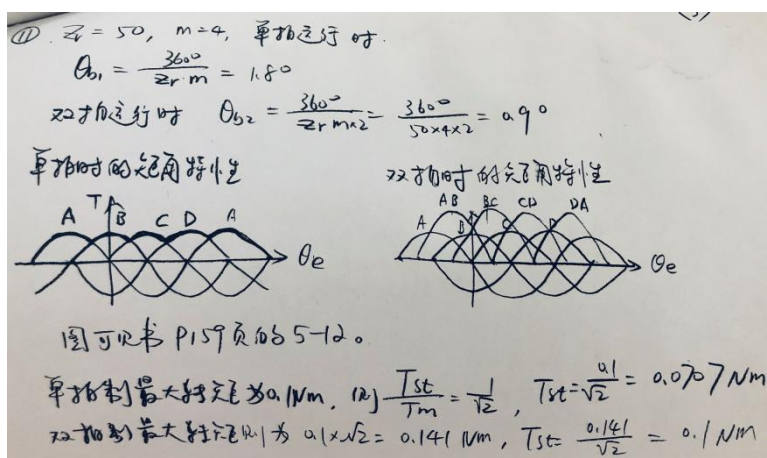 ⑪. Zr = 50, m=4, 单拍运行时.
θb1 = 360° / Zr·m = 1.8°
双拍运行时 θb2 = 360° / Zr m×2 = 360° / 50×4×2 = 0.9°
单拍时的矩角特性 双拍时的矩角特性
A T B C D A θe
AB BC CD DA
A B C D θe
图可见书 P159页的 5-12。
单拍制最大转矩为0.1Nm, 则 Tst / Tm = 1 / √2, Tst = 0.1 / √2 = 0.0707 Nm
双拍制最大转矩则为 0.1×√2 = 0.141 Nm, Tst = 0.141 / √2 = 0.1 Nm